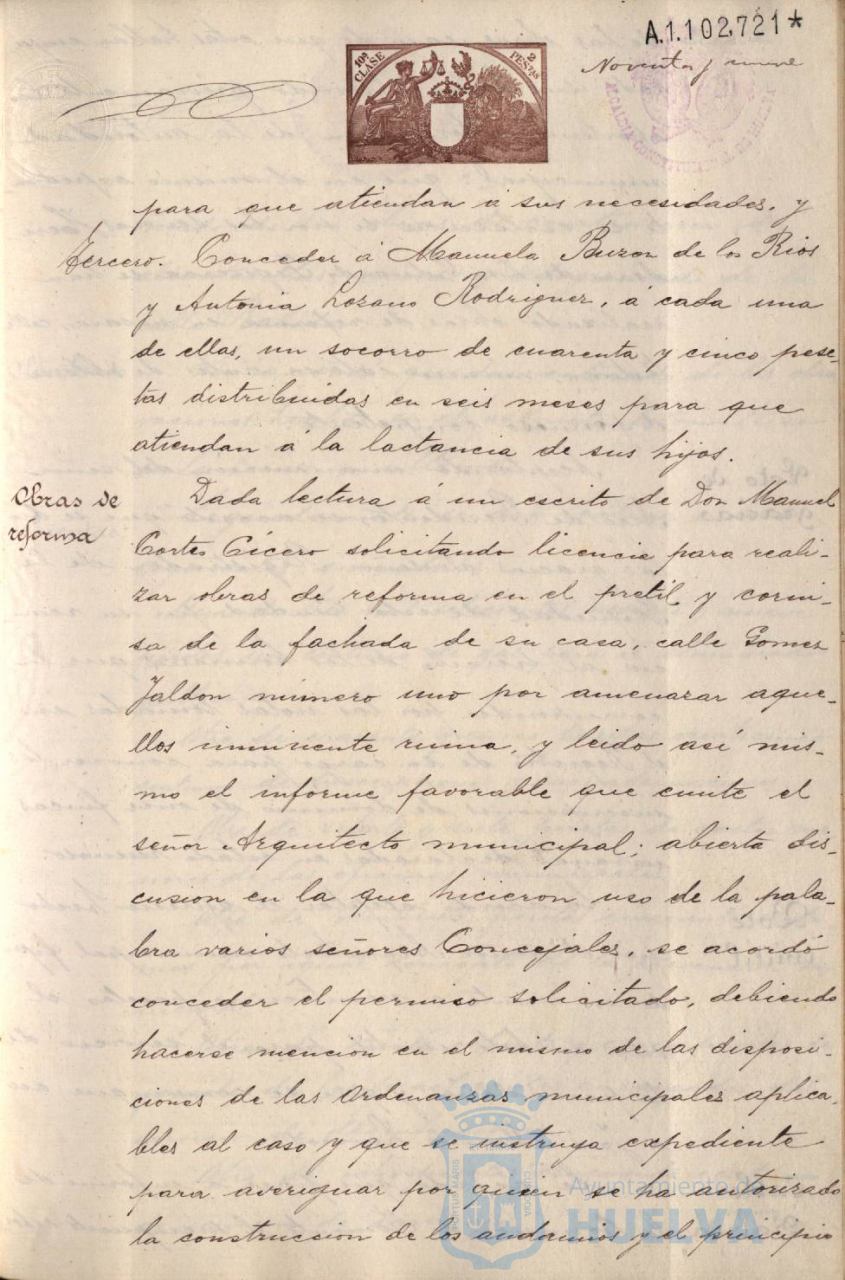 A.1.102,721*
10ª CLASE
2 PESETAS
Noventa y nueve
ALCALDIA CONSTITUCIONAL DE HUELVA
para que atiendan á sus necesidades. y
Tercero. Conceder á Manuela Buzon de los Rios
y Antonia Lozano Rodriguez, á cada una
de ellas, un socorro de cuarenta y cinco pese-
tas distribuidas en seis meses para que
atiendan á la lactancia de sus hijos.
Obras de
reforma
Dada lectura á un escrito de Don Manuel
Cortes Cícero solicitando licencia para reali-
zar obras de reforma en el pretil y corni-
sa de la fachada de su casa, calle Gomez
Jaldon número uno por amenazar aque-
llos inminente ruina, y leido así mis-
mo el informe favorable que emite el
señor Arquitecto municipal; abierta dis-
cusion en la que hicieron uso de la pala-
bra varios señores Concejales, se acordó
conceder el permiso solicitado, debiendo
hacerse mencion en el mismo de las disposi-
ciones de las Ordenanzas municipales aplica-
bles al caso y que se instruya expediente
para averiguar por quien se ha autorizado
la construccion de los andamios y el principio
Ayuntamiento de
HUELVA